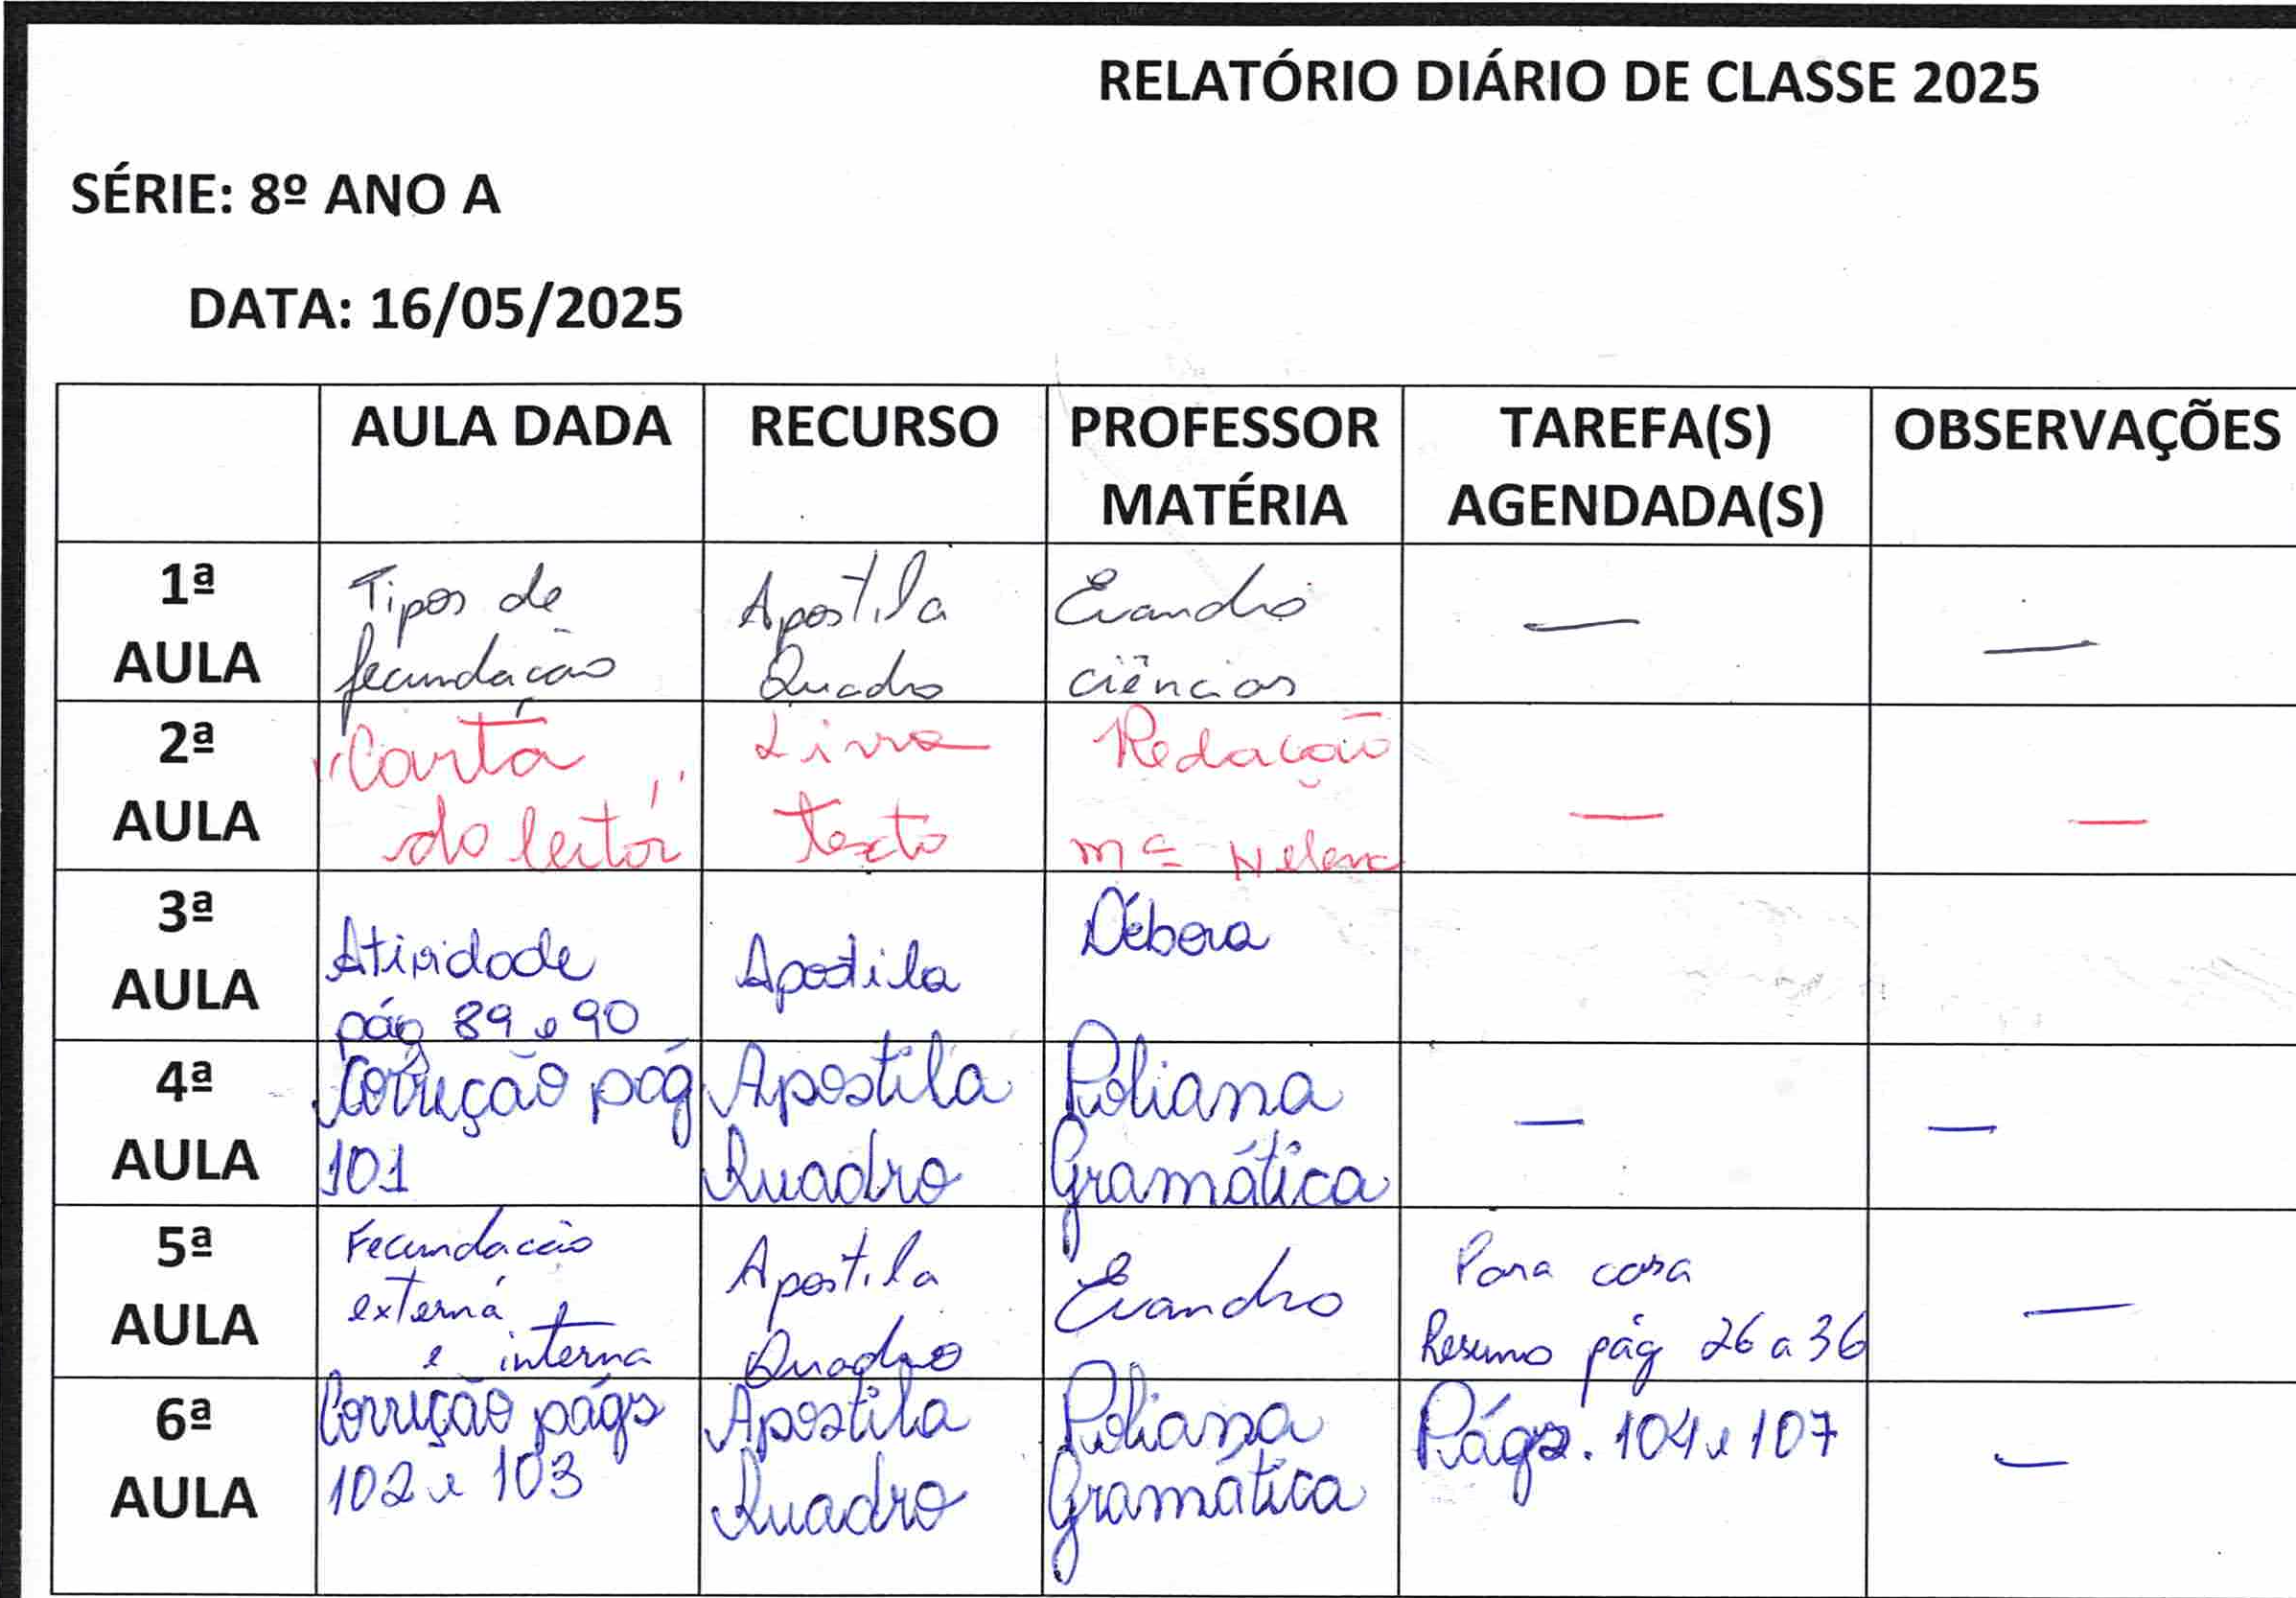 RELATÓRIO DIÁRIO DE CLASSE 2025
SÉRIE: 8º ANO A
DATA: 16/05/2025
AULA DADA
RECURSO
PROFESSOR
MATÉRIA
TAREFA(S)
AGENDADA(S)
OBSERVAÇÕES
1ª
AULA
Tipos de
fecundação
Apostila
Quadro
Evandro
ciências
—
—
2ª
AULA
"Carta
do leitor"
Livro
texto
Redação
Mª Helena
—
—
3ª
AULA
Atividade
pág 89 e 90
Apostila
Débora
4ª
AULA
Correção pág
101
Apostila
Quadro
Poliana
Gramática
—
—
5ª
AULA
Fecundação
externa
e interna
Apostila
Quadro
Evandro
Para casa
Resumo pág 26 a 36
—
6ª
AULA
Correção págs
102 e 103
Apostila
Quadro
Poliana
Gramática
Págs. 104 e 107
—